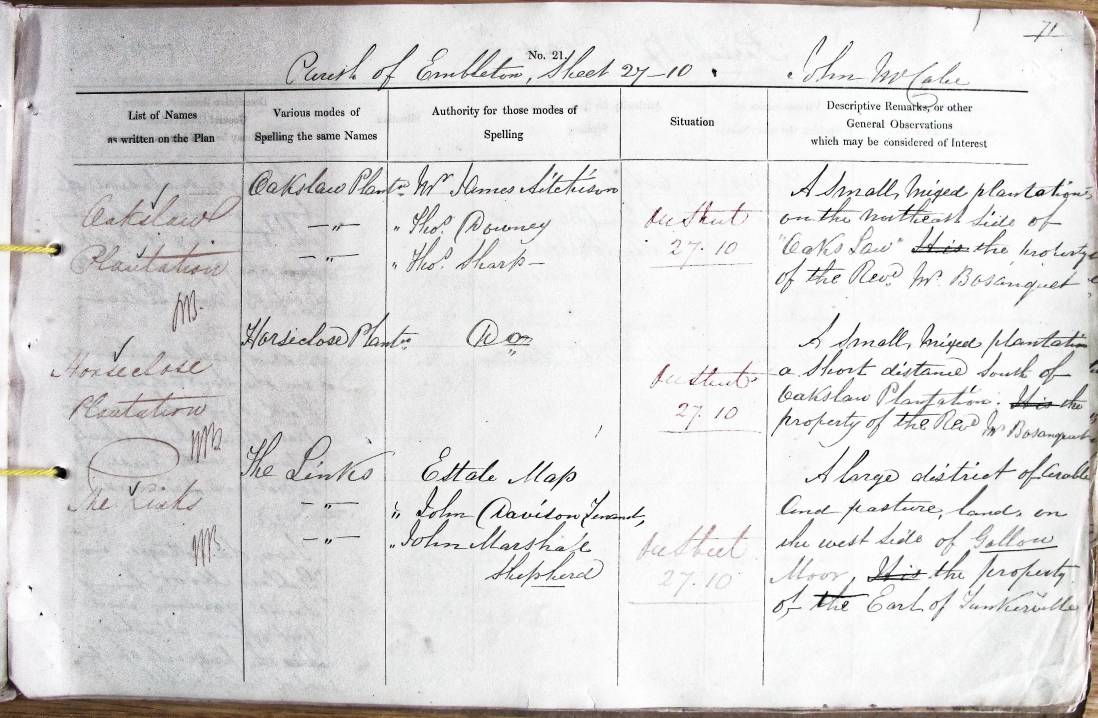 71
No. 21.
Parish of Embleton, Sheet 27-10. John McCabe
List of Names
as written on the Plan
Various modes of
Spelling the same Names
Authority for those modes of
Spelling
Situation
Descriptive Remarks, or other
General Observations
which may be considered of Interest
Oakslaw
Plantation
Oakslaw Plantn
— „ —
— „ —
Mr James Aitchison
„ Thos. Downey
„ Thos. Sharp
On Sheet
27.10
A Small, Mixed plantation,
on the northeast side of
"Oaks Law" It is the property
of the Revd. Mr. Bosanquet
Horseclose
Plantation
Horseclose Plantn
Do
On Sheet
27.10
A Small, Mixed plantation
a Short distance South of
Oakslaw Plantation. It is the
property of the Revd Mr Bosanquet
The Links
The Links
— „ —
— „ —
Estate Map
„ John Davison Tenant,
„ John Marshall
Shepherd
On Sheet
27.10
A large district of Arable
and pasture, land, on
the west side of Gallow
Moor, It is the property
of the Earl of Tankerville